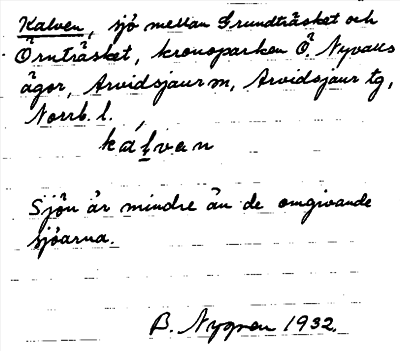 Kalven, sjö mellan Grundträsket och
Örnträsket, kronoparken Ö. Nyvalls
ägor, Arvidsjaur m, Arvidsjaur tg,
Norrb. l.
kálvan
Sjön är mindre än de omgivande
sjöarna.
B. Nygren 1932.